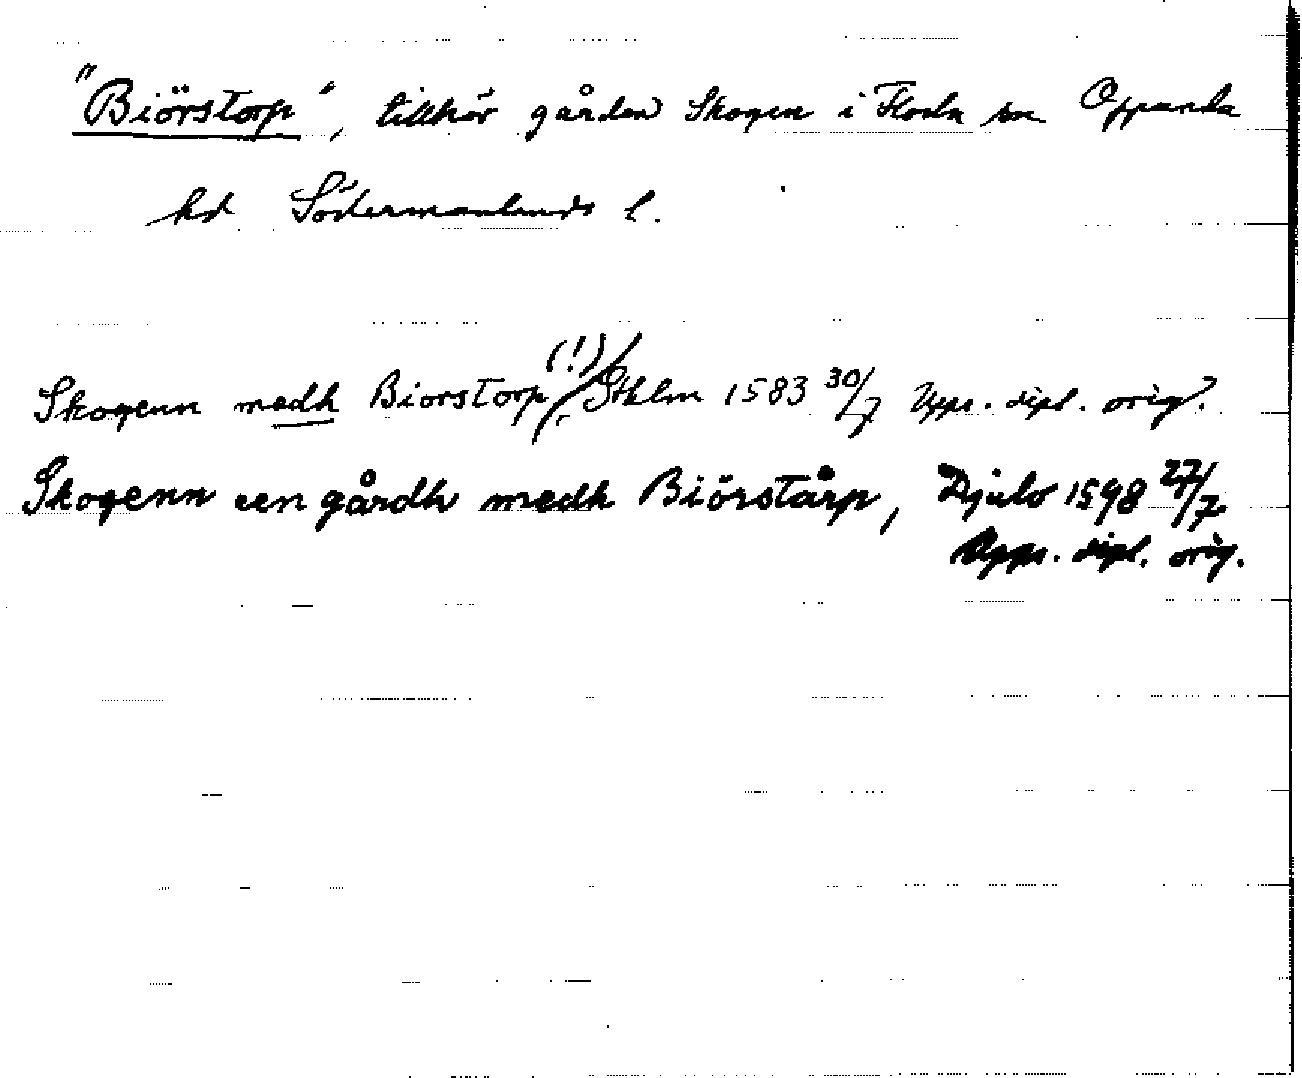 "Biörstorp", tillhör gården Skogen i Floda sn Oppunda
hd Södermanlands l.
Skogenn medh Biorstorp (!) / Sthlm 1583 30/7 Upps. dipl. orig.
Skogenn een gårdh medh Biörstårp, Djulö 1598 27/7
Upps. dipl. orig.